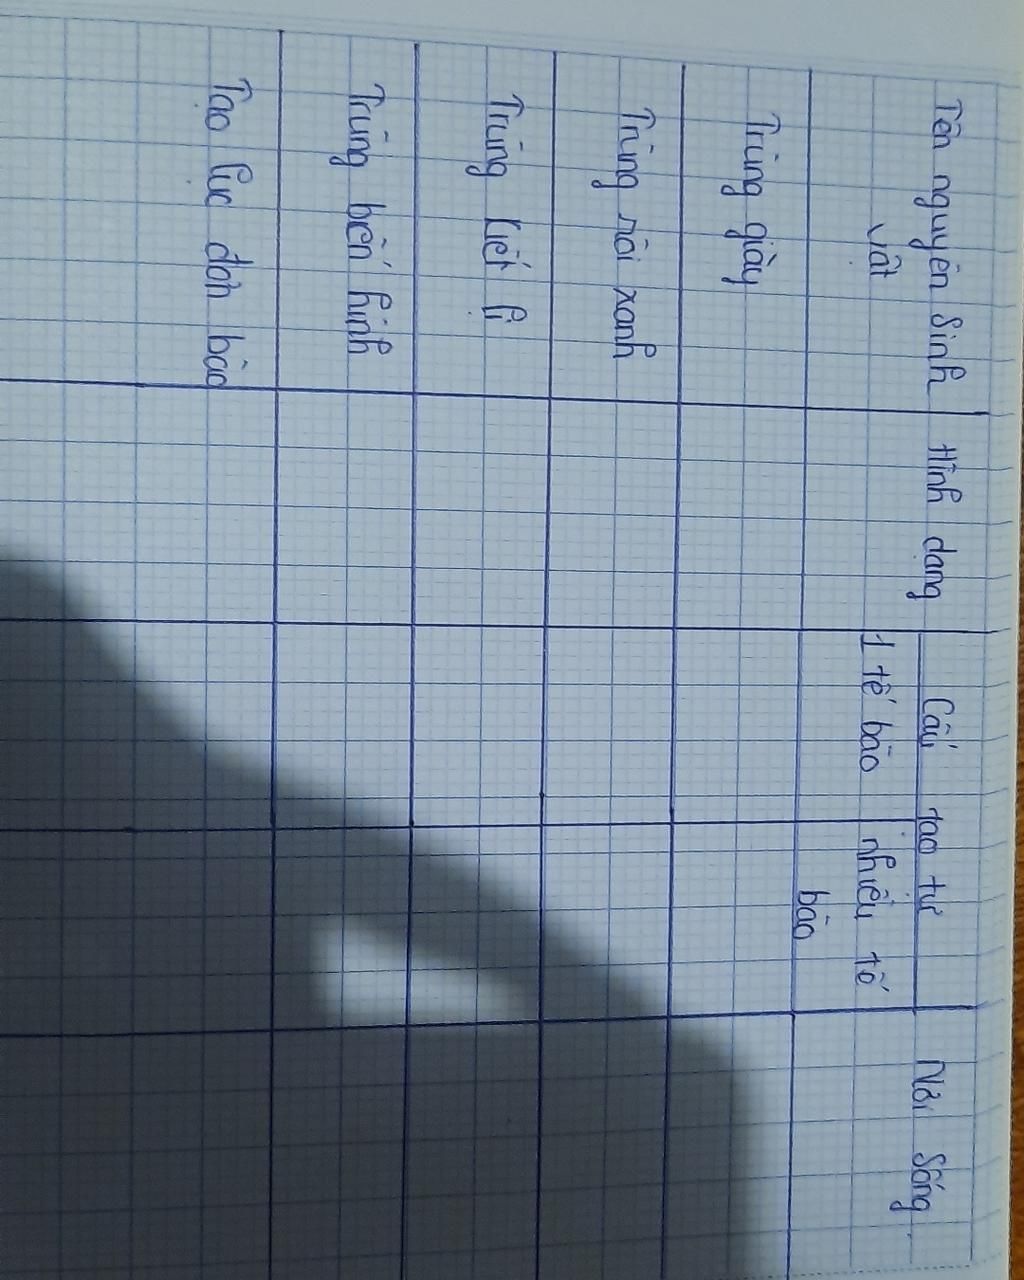 Tên nguyên sinh
vật
Hình dạng
Cấu tạo từ
1 tế bào
nhiều tế
bào
Nơi sống
Trùng giày
Trùng roi xanh
Trùng kiết lị
Trùng biến hình
Tảo lục đơn bào